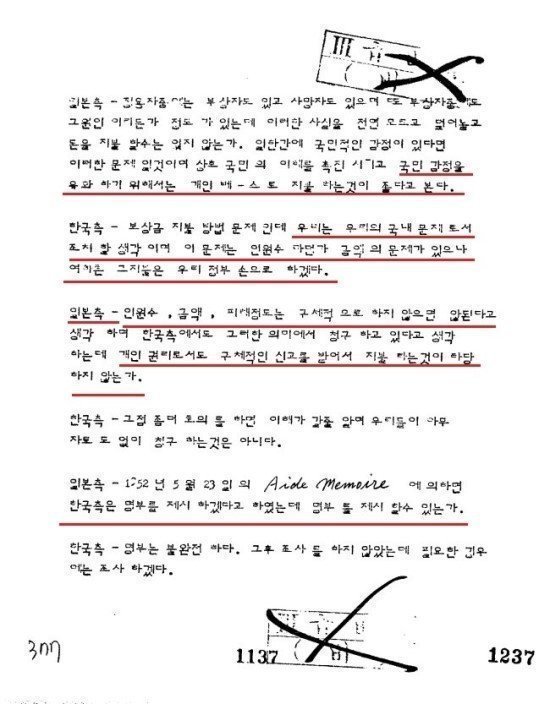 일본측 - 징용자중에는 부상자도 있고 사망자도 있으며 또 부상자중에도
그 원인 이라든가 정도 가 있는데 이러한 사실을 전연 모르고 덮어놓고
돈을 지불 할수는 없지 않는가. 일한간에 국민적인 감정이 있다면
이러한 문제 일것이며 상호 국민 의 이해를 촉진 시키고 국민 감정을
유화 하기 위해서는 개인 베-스로 지불 하는것이 좋다고 본다.
한국측 - 보상금 지불 방법 문제 인데 우리는 우리의 국내 문제로서
조처 할 생각 이며 이 문제는 인원수 라던가 금액 의 문제가 있으나
여하튼 그지불은 우리 정부 손으로 하겠다.
일본측 - 인원수, 금액, 피해정도는 구체적 으로 하지 않으면 않된다고
생각 하며 한국측에서도 그러한 의미에서 청구 하고 있다고 생각
하는데 개인 권리로서도 구체적인 신고를 받어서 지불 하는것이 타당
하지 않는가.
한국측 - 그점 좀더 토의 를 하면 이해가 갈줄 알며 우리들이 아무
자료 도 없이 청구 하는것은 아니다.
일본측 - 1952 년 5 월 23 일 의 Aide Memoire 에 의하면
한국측은 명부를 제시 하겠다고 하였는데 명부 를 제시 할수 있는가.
한국측 - 명부는 불완전 하다. 그후 조사 를 하지 않았는데 필요한 경우
에는 조사 하겠다.
1137
1237